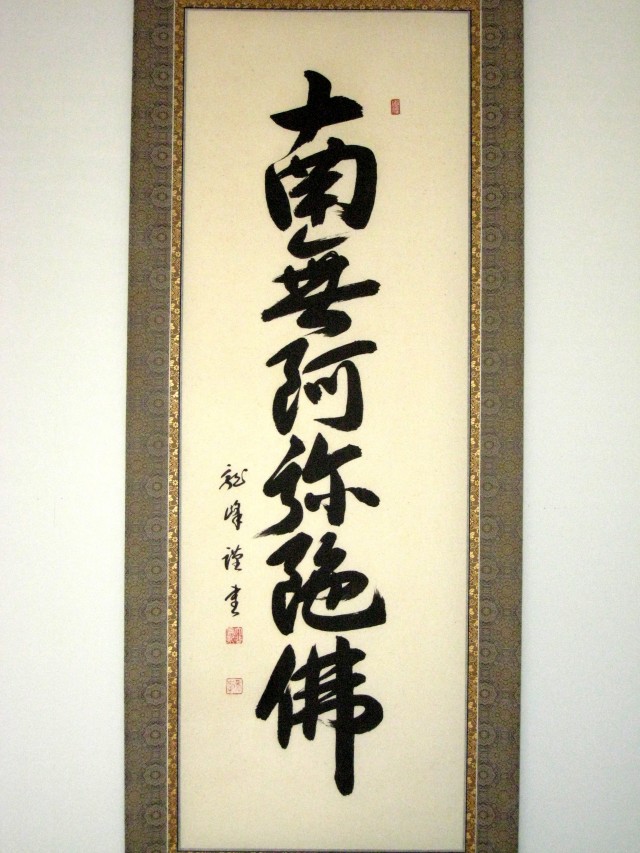 南無阿弥陀佛
龍峰謹書